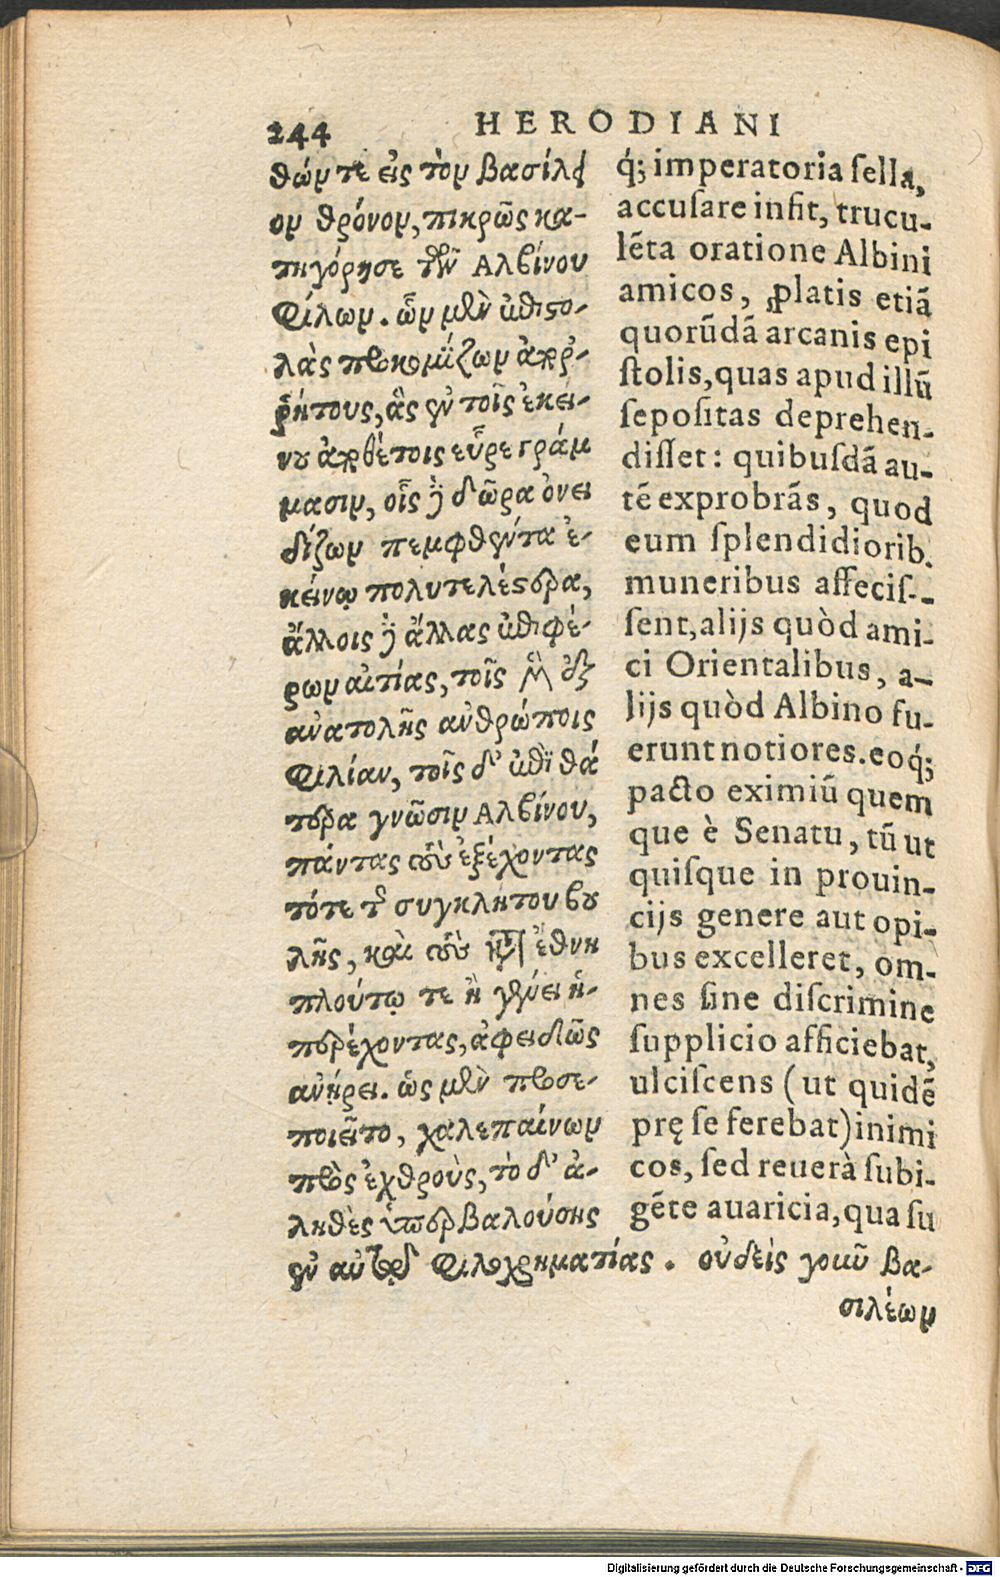 244 HERODIANI
θών τε εἰς τὸν βασίλει
ον θρόνον, πικρῶς κα-
τηγόρησε τῶν Αλβίνου
φίλων. ὧν μὲν ἐπιστο-
λὰς προκομίζων ἀπορ-
ῥήτους, ἃς ἐν τοῖς ἐκεί-
νου ἀποθέτοις εὗρε γράμ
μασιν, οἷς δὲ δῶρα ὀνει
δίζων πεμφθέντα ἐ-
κείνῳ πολυτελέστερα,
ἄλλοις δὲ ἄλλας ἐπιφέ-
ρων αἰτίας, τοῖς μὲν ἐξ
ἀνατολῆς ἀνθρώποις
φιλίαν, τοῖς δ' ἐπὶ θά
τερα γνῶσιν Αλβίνου,
πάντας τοὺς ἐξέχοντας
τότε τῆς συγκλήτου βου
λῆς, καὶ τοὺς κατὰ ἔθνη
πλούτῳ τε ἢ γένει ὑ-
περέχοντας, ἀφειδῶς
ἀνῄρει. ὡς μὲν προσε-
ποιεῖτο, χαλεπαίνων
πρὸς ἐχθροὺς, τὸ δ' ἀ-
ληθὲς ὑπερβαλούσης
ἐν αὐτῷ φιλοχρηματίας. οὐδεὶς γοῦν βα-
σιλέων
q́; imperatoria ſella,
accuſare infit, trucu-
lēta oratione Albini
amicos, ꝓlatis etiā
quorūdā arcanis epi
ſtolis, quas apud illū
ſepoſitas deprehen-
diſſet: quibuſdā au-
tē exprobrās, quod
eum ſplendidiorib.
muneribus affeciſ-
ſent, alijs quòd ami-
ci Orientalibus, a-
lijs quòd Albino fu-
erunt notiores. eoq́;
pacto eximiū quem
que è Senatu, tū ut
quiſque in prouin-
cijs genere aut opi-
bus excelleret, om-
nes ſine diſcrimine
ſupplicio afficiebat,
ulciſcens (ut quidē
prę ſe ferebat) inimi
cos, ſed reuerà ſubi-
gēte auaricia, qua ſu
Digitalisierung gefördert durch die Deutsche Forschungsgemeinschaft - DFG